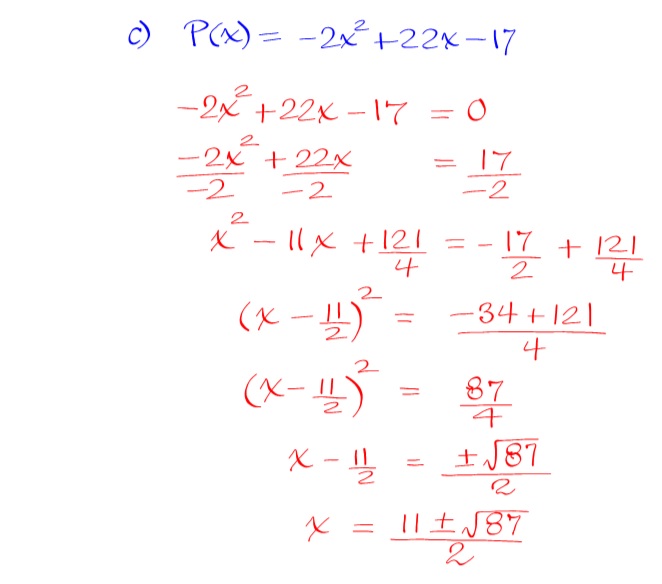 c) P(x) = -2x² + 22x - 17
-2x² + 22x - 17 = 0
-2x²/-2 + 22x/-2 = 17/-2
x² - 11x + 121/4 = - 17/2 + 121/4
(x - 11/2)² = (-34 + 121)/4
(x - 11/2)² = 87/4
x - 11/2 = ±√87/2
x = (11 ± √87)/2